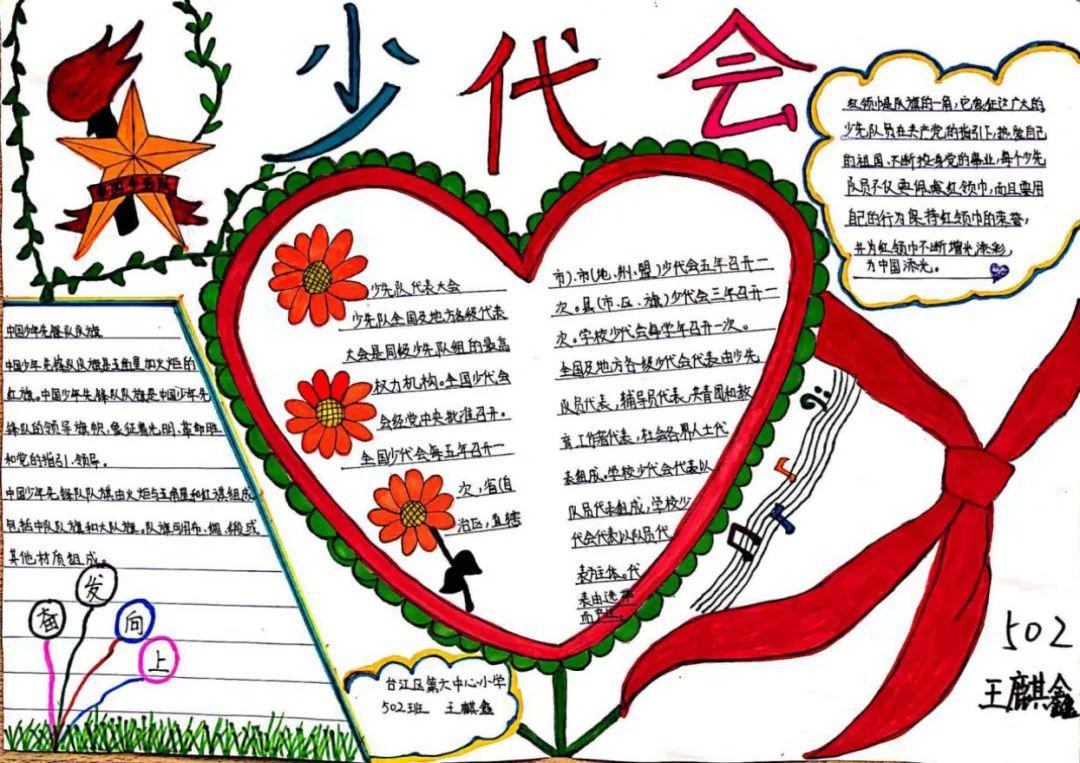 少代会
中国少先队
红领巾是队旗的一角,它象征这广大的
少先队员在共产党的指引上,热爱自己
的祖国,不断投身党的事业,每个少先
队员不仅要佩戴红领巾,而且要用
自己的行为保持红领巾的荣誉,
并为红领巾不断增光添彩,
为中国添光。
中国少年先锋队队旗
中国少年先锋队队旗是五角星加火炬的
红旗。中国少年先锋队队旗是中国少年先
锋队的领导旗帜,象征着光明、革命胜
和党的指引、领导。
中国少年先锋队队旗由火炬与五角星和红旗组成
包括中队队旗和大队旗。队旗可用布、绸、缎或
其他材质组成。
奋发向上
少先队代表大会
少先队全国及地方各级代表
大会是同级少先队组的最高
权力机构。全国少代会
会经党中央批准召开。
全国少代会每五年召开一
次,省(自
治区,直辖
市)、市(地、州、盟)少代会五年召开一
次。县(市、区、旗)少代会三年召开一
次。学校少代会每学年召开一次。
全国及地方各级少代会代表由少先
队员代表,辅导员代表,共青团和教
育工作者代表,社会各界人士代
表组成。学校少代会代表以
队员代表组成,学校少
代会代表以队员代
表为主体。代
表由选举
而产生。
台江区第六中心小学
502班 王麒鑫
502
王麒鑫